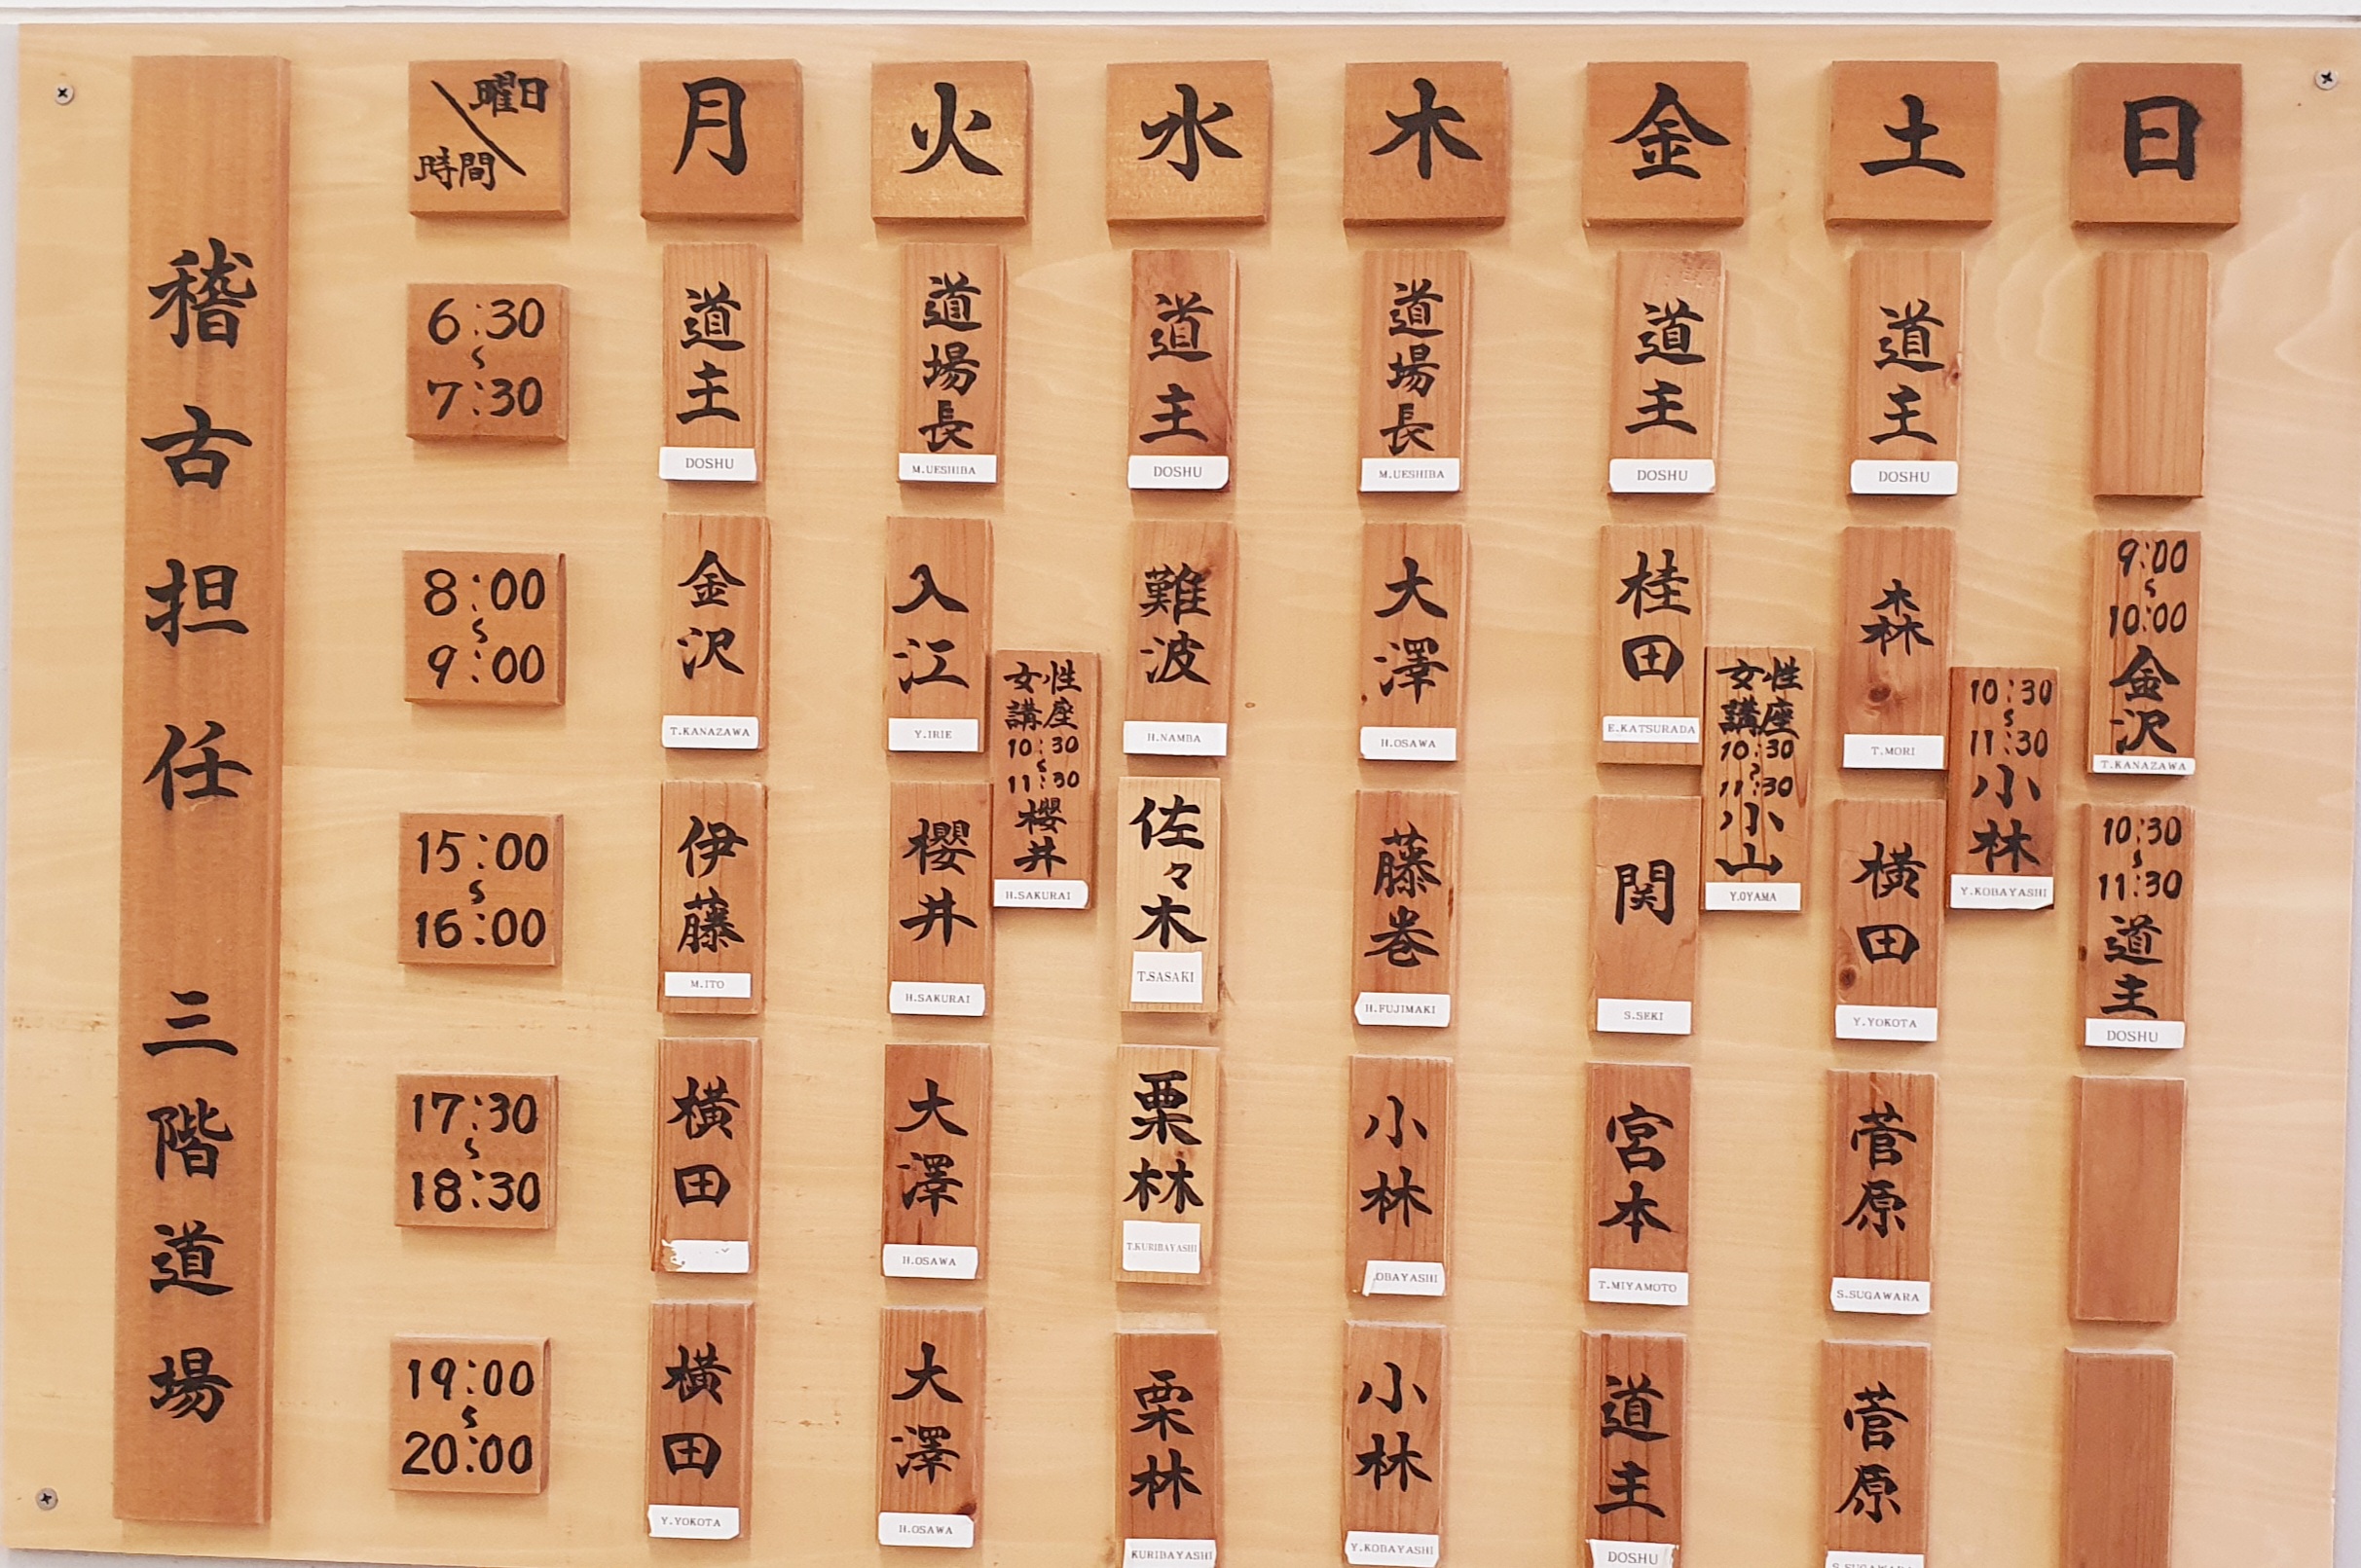 稽古担任 三階道場
曜日
時間
月
火
水
木
金
土
日
6:30
〜
7:30
道主
DOSHU
道場長
M.UESHIBA
道主
DOSHU
道場長
M.UESHIBA
道主
DOSHU
道主
DOSHU
8:00
〜
9:00
金沢
T.KANAZAWA
入江
Y.IRIE
女性
講座
10:30
〜
11:30
櫻井
H.SAKURAI
難波
H.NAMBA
大澤
H.OSAWA
桂田
E.KATSURADA
女性
講座
10:30
〜
11:30
小山
Y.OYAMA
森
T.MORI
10:30
〜
11:30
小林
Y.KOBAYASHI
9:00
〜
10:00
金沢
T.KANAZAWA
15:00
〜
16:00
伊藤
M.ITO
櫻井
H.SAKURAI
佐々木
T.SASAKI
藤巻
H.FUJIMAKI
関
S.SEKI
横田
Y.YOKOTA
10:30
〜
11:30
道主
DOSHU
17:30
〜
18:30
横田
大澤
H.OSAWA
栗林
T.KURIBAYASHI
小林
OBAYASHI
宮本
T.MIYAMOTO
菅原
S.SUGAWARA
19:00
〜
20:00
横田
Y.YOKOTA
大澤
H.OSAWA
栗林
KURIBAYASHI
小林
Y.KOBAYASHI
道主
DOSHU
菅原
S.SUGAWARA